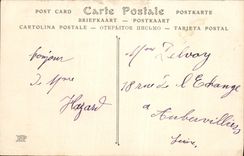 POST CARD Carte Postale POSTKARTE
BRIEFKAART — POSTKAART
CARTOLINA POSTALE — ОТКРЫТОЕ ПИСЬМО — TARJETA POSTAL
bonjour
de Mme
Hazard
Mme Delvoy
18 rue de l'Echange
a Aubervilliers
Seine